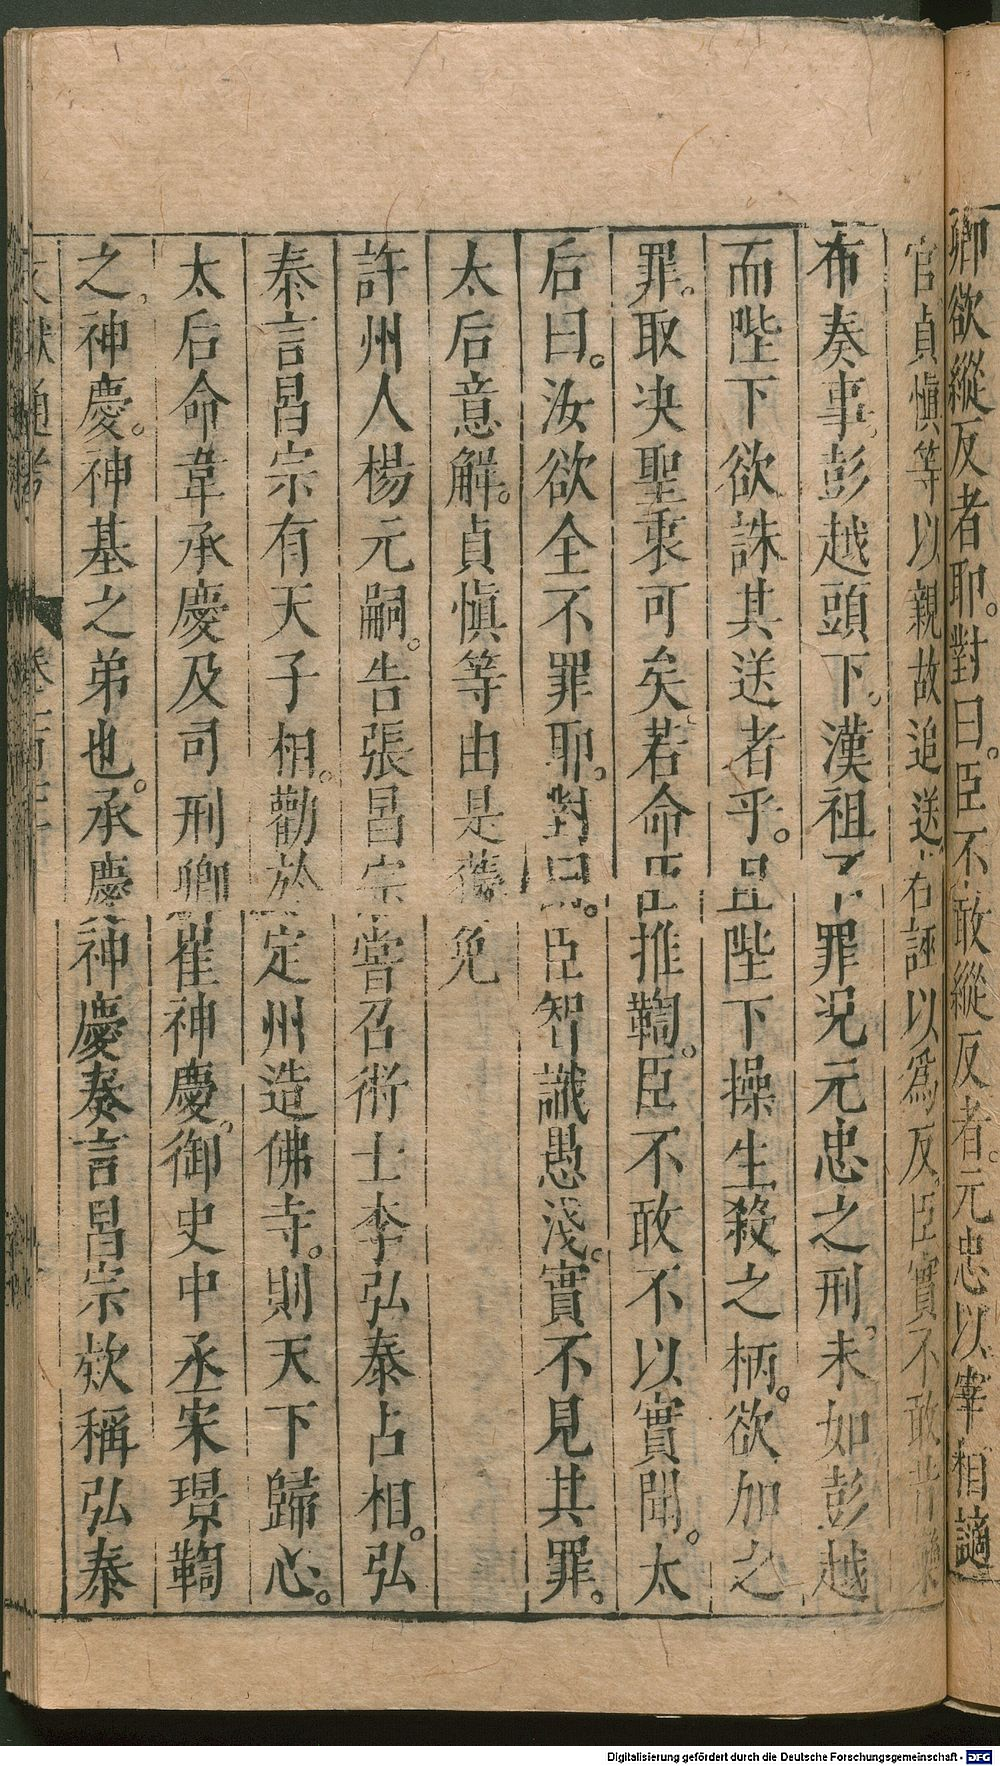 卿欲縱反者耶。對曰。臣不敢縱反者。元忠以宰相謫
官貞愼等以親故追送右誣以爲反。臣實不敢昔欒
布奏事。彭越頭下。漢祖不罪況元忠之刑。未如彭越
而陛下欲誅其送者乎。且陛下操生殺之柄。欲加之
罪。取決聖衷可矣若命臣推鞫。臣不敢不以實聞。太
后曰。汝欲全不罪耶。對曰。臣智識愚淺。實不見其罪。
太后意解。貞愼等由是獲免
許州人楊元嗣。告張昌宗嘗召術士李弘泰占相。弘
泰言昌宗有天子相。勸於定州造佛寺。則天下歸心。
太后命韋承慶及司刑卿崔神慶。御史中丞宋璟鞫
之。神慶。神基之弟也。承慶神慶奏言昌宗欵稱弘泰
文獻通考 卷一百七十
Digitalisierung gefördert durch die Deutsche Forschungsgemeinschaft - DFG